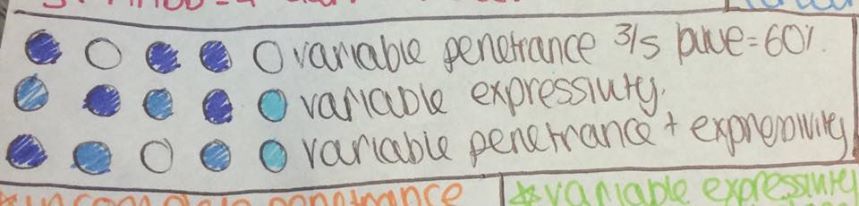 variable penetrance 3/5 blue = 60%.
variable expressivity.
variable penetrance + expressivity
penetrance
*variable expressivity